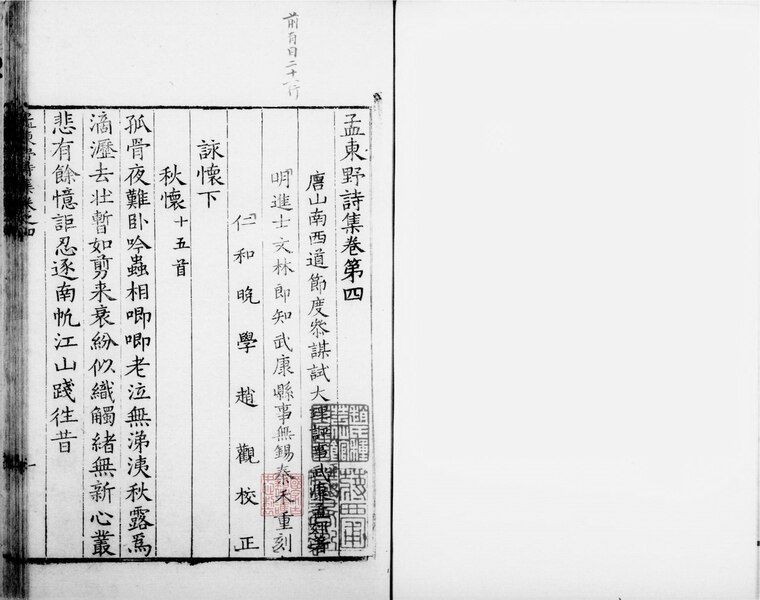 前百日二十行
孟東野詩集卷第四
唐山南西道節度叅謀試大理評事武康孟郊著
明進士文林郎知武康縣事無錫秦禾重刻
仁和晚學趙觀校正
詠懷下
秋懷十五首
孤骨夜難卧吟蟲相唧唧老泣無涕洟秋露爲
滴瀝去壯暫如剪来衰紛似織觸緒無新心叢
悲有餘憶詎忍逐南帆江山踐徃昔
孟東野詩集卷之四
一